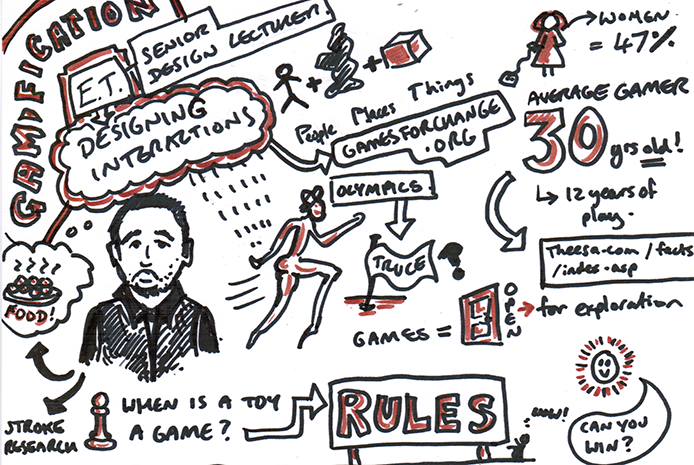 GAMIFICATION
E.T.
SENIOR
DESIGN LECTURER.
DESIGNING
INTERACTIONS
People Places Things
GAMESFORCHANGE
.ORG
OLYMPICS.
TRUCE
?
GAMES =
OPEN
for exploration
WOMEN
= 47%
AVERAGE GAMER
30 yrs old!
12 years of
play.
Theesa.com/facts
/index.asp
FOOD!
STROKE
RESEARCH
WHEN IS A TOY
A GAME?
RULES
WOW!
CAN YOU
WIN?